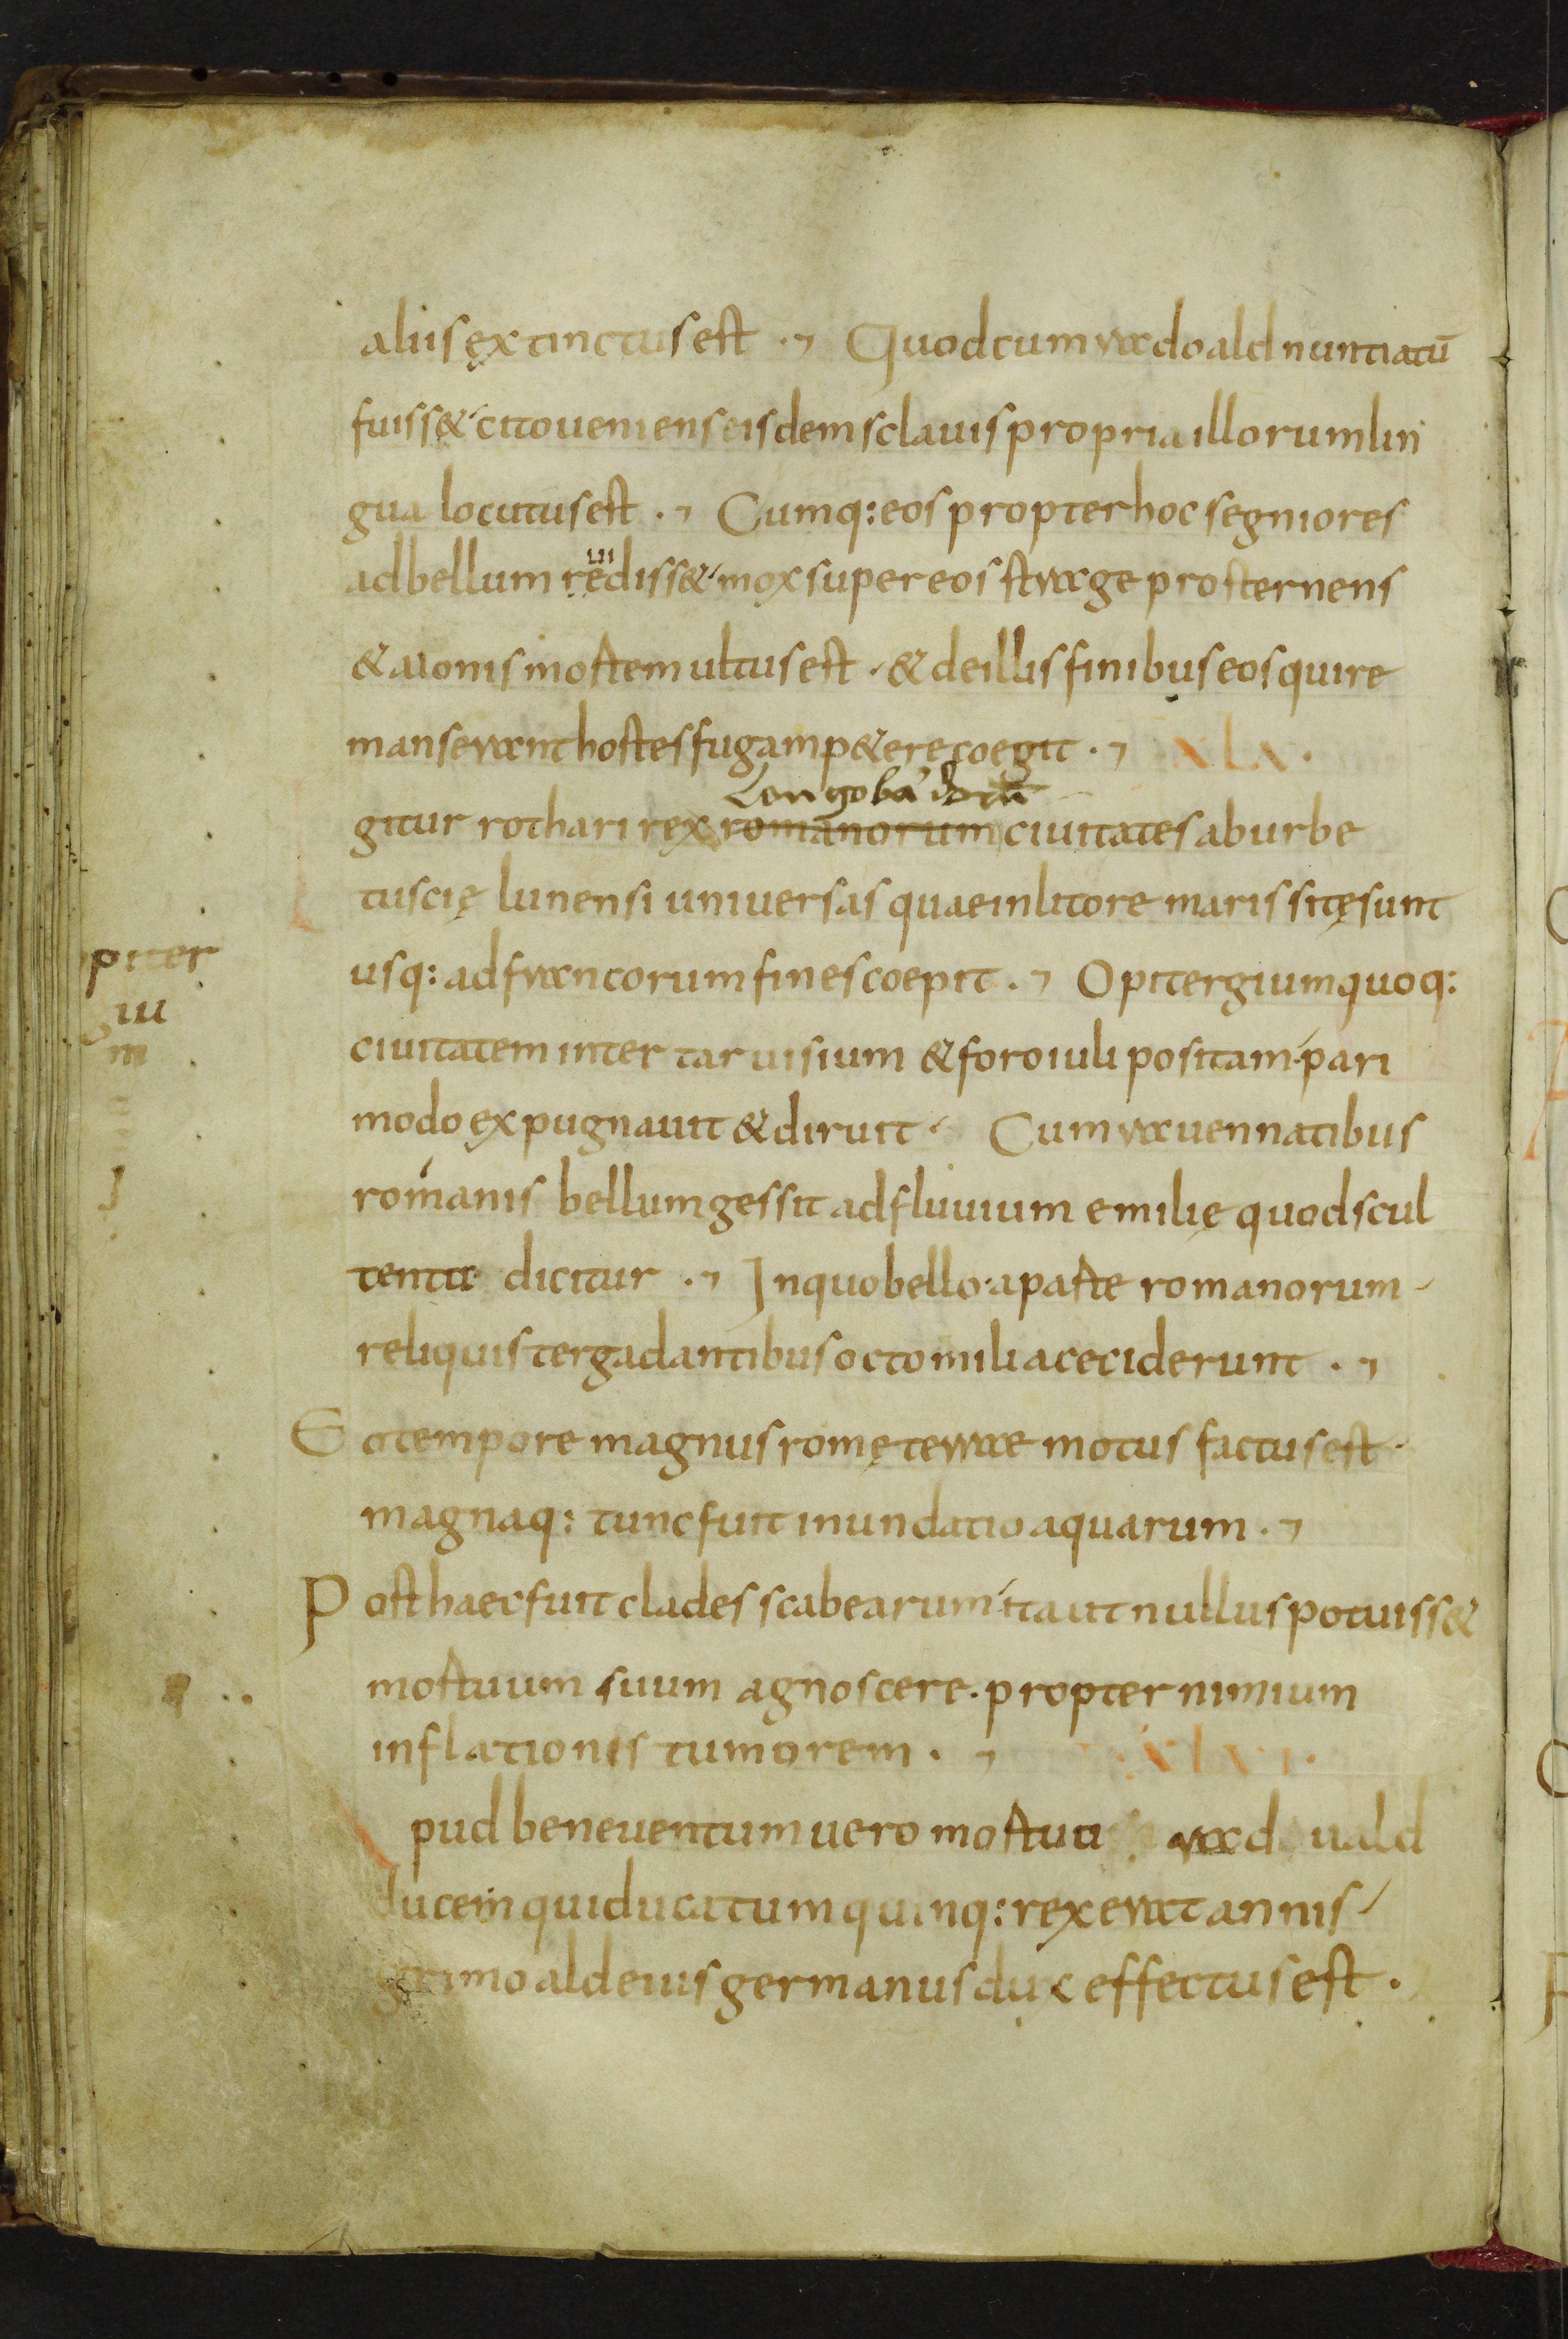 aliis ęxtinctus est . Quod cum radoald nuntiatū
fuiss& cito ueniens eisdem sclauis propria illorum lin
gua locutus est . Cumq: eos propter hoc segniores
ad bellum redissę& mox super eos strage prosternens
& aionis mortem ultus est . & de illis finibus eos qui re
manserant hostes fugam p&ere coegit . XLV .
Longobardorū
gitur rothari rex romanorum ciuitates ab urbe
tuscię lunensi uniuersas quae in litore maris sitę sunt
usq: ad francorum fines coepit . Opitergium quoq:
ciuitatem inter taruisium & foroiuli positam pari
modo expugnauit & diruit . Cum rauennatibus
romanis bellum gessit ad fluuium emilię quod scul
tenna dicitur . In quo bello . a parte romanorum
reliquis terga dantibus octo milia ceciderunt .
Eo tempore magnus romę terrae motus factus est .
magnaq: tunc fuit inundatio aquarum .
Post haec fuit clades scabearum ita ut nullus potuiss&
mortuum suum agnoscere . propter nimium
inflationis tumorem . XLVI .
pud beneuentum uero mortuo raduald
ducem qui ducatum quinq: rexerat annis
grimoald eius germanus dux effectus est .
piter
giu
m